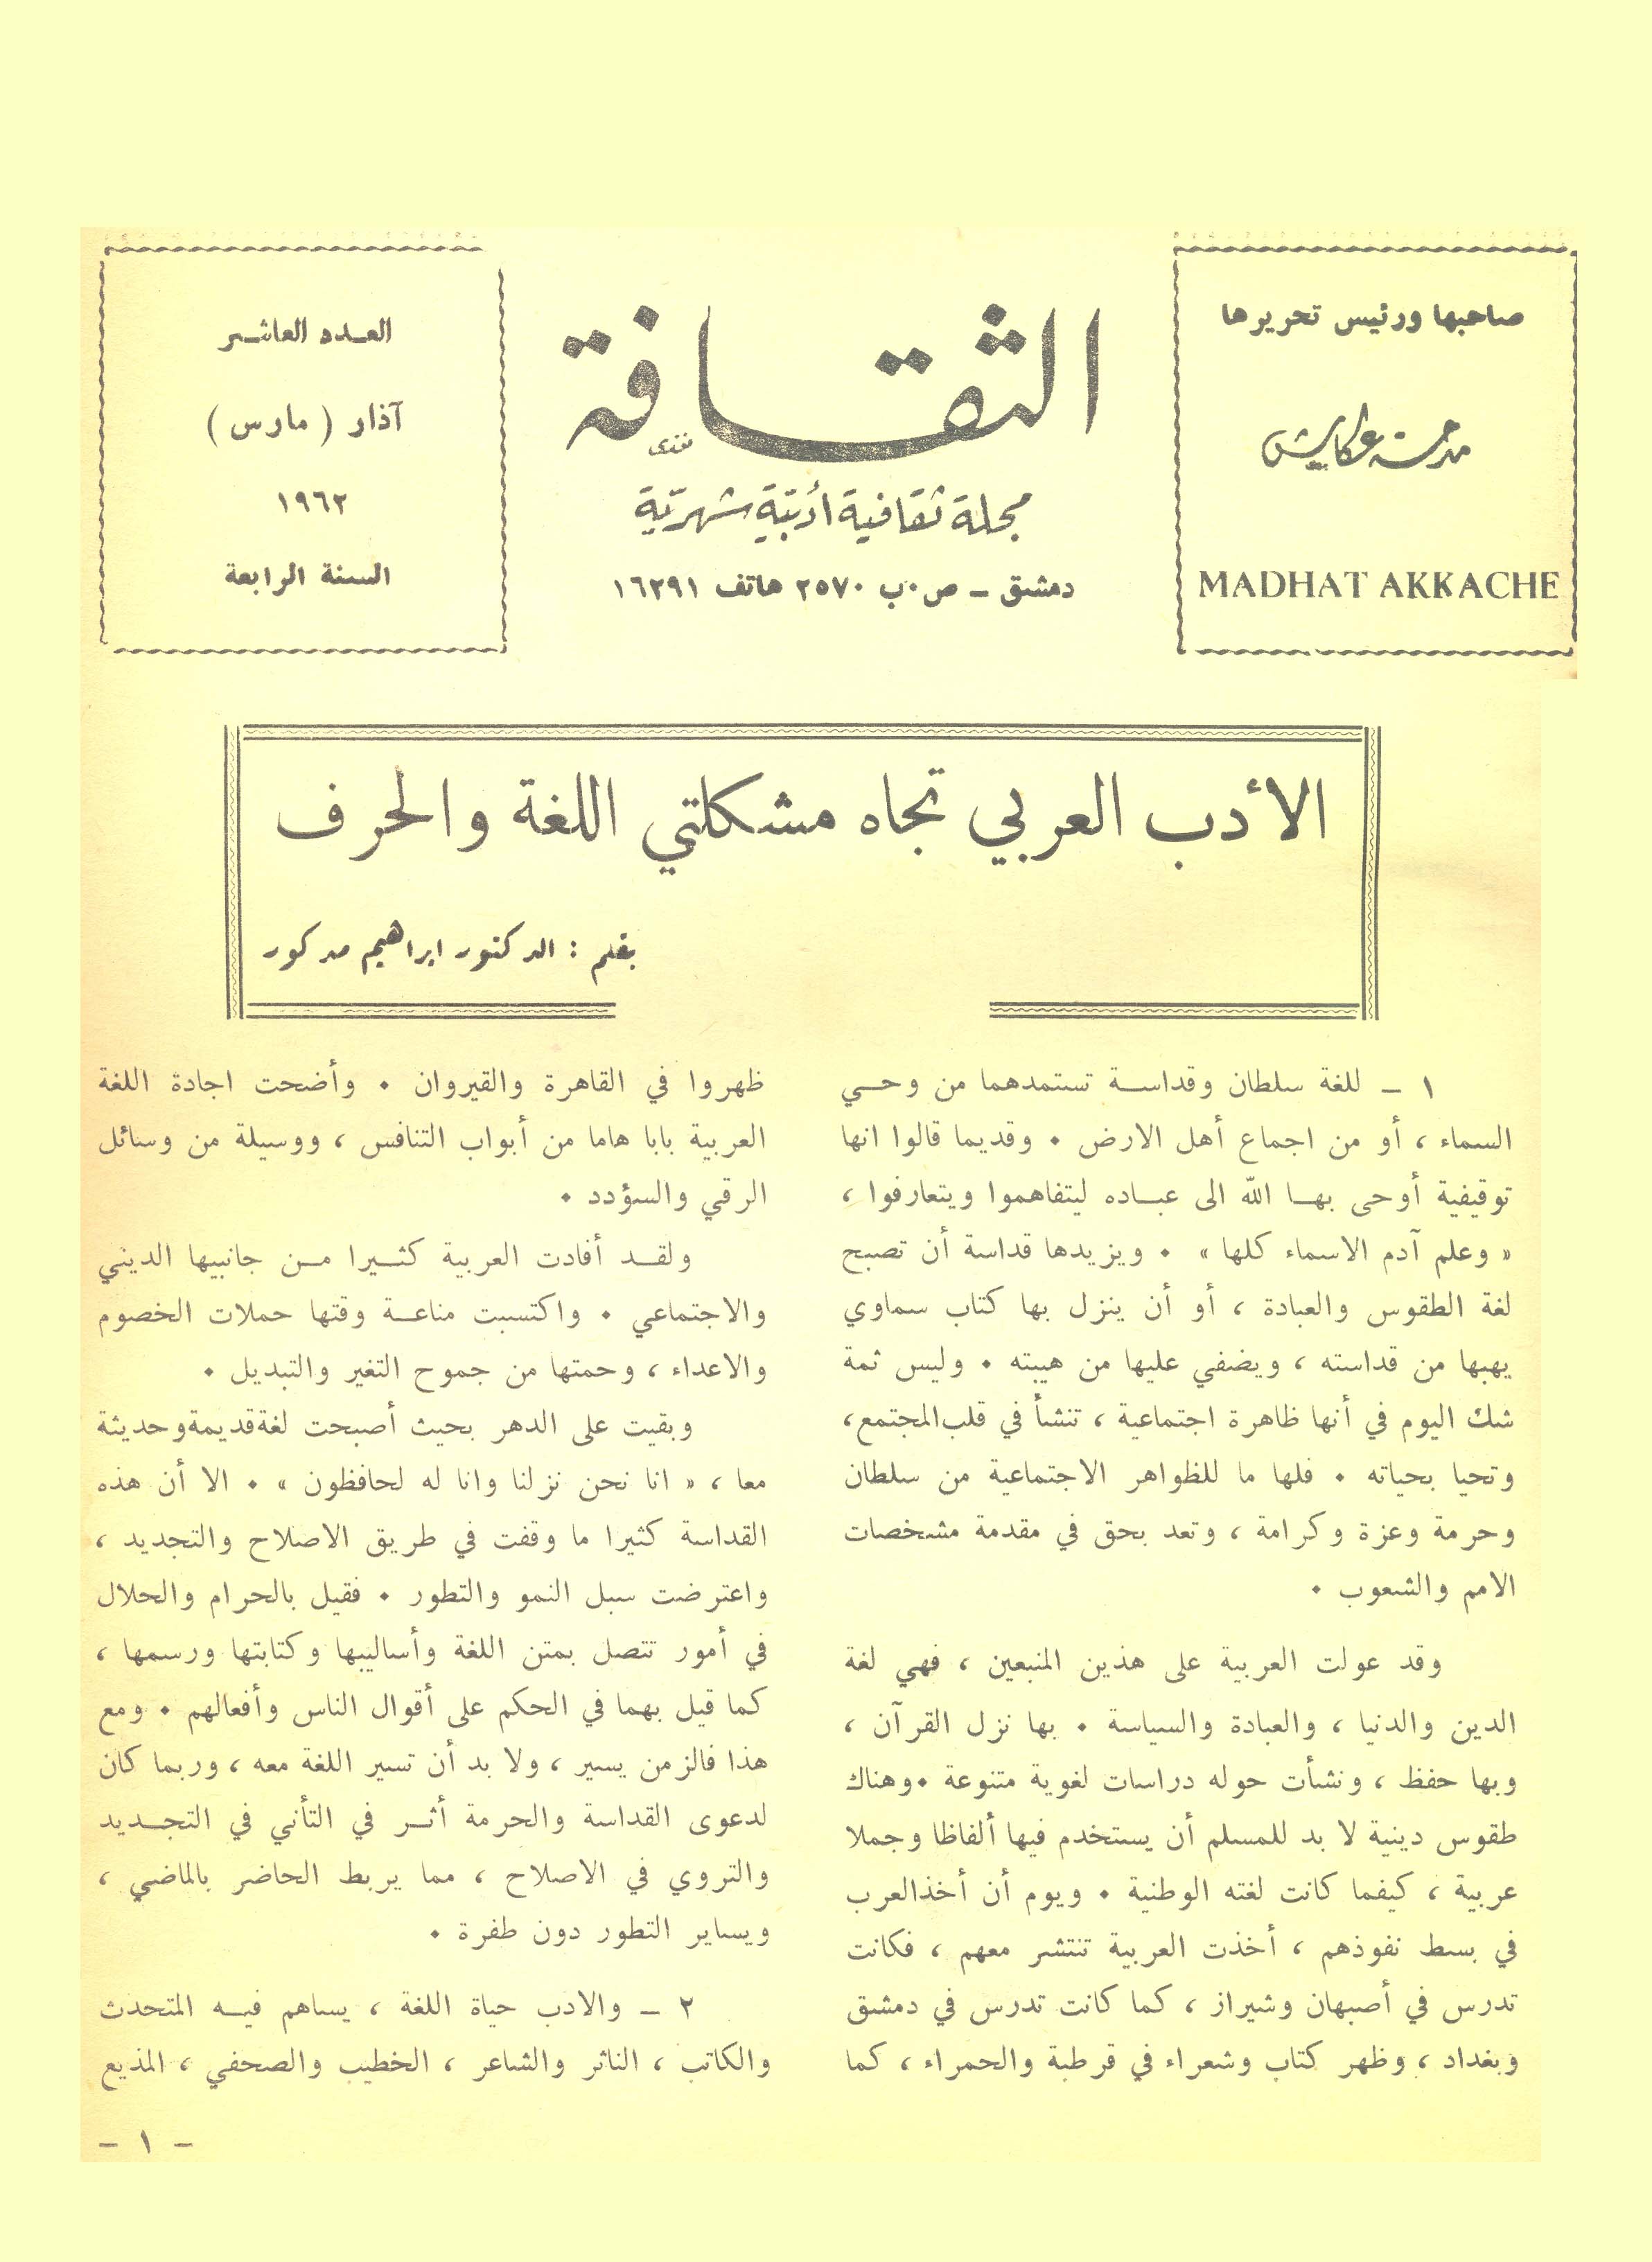 صاحبها ورئيس تحريرها
مدحت عكاش
MADHAT AKKACHE
الثقافة
مجلة ثقافية أدبية شهرية
دمشق – ص٠ب ٢٥٧٠ هاتف ١٦٢٩١
العدد العاشر
آذار ( مارس )
١٩٦٢
السنة الرابعة
الأدب العربي تجاه مشكلتي اللغة والحرف
بقلم : الدكتور ابراهيم مدكور
١ – للغة سلطان وقداسة تستمدهما من وحي
السماء ، أو من اجماع أهل الارض ٠ وقديما قالوا انها
توقيفية أوحى بها الله الى عباده ليتفاهموا ويتعارفوا ،
« وعلم آدم الاسماء كلها » ٠ ويزيدها قداسة أن تصبح
لغة الطقوس والعبادة ، أو أن ينزل بها كتاب سماوي
يهبها من قداسته ، ويضفي عليها من هيبته ٠ وليس ثمة
شك اليوم في أنها ظاهرة اجتماعية ، تنشأ في قلب المجتمع ،
وتحيا بحياته ٠ فلها ما للظواهر الاجتماعية من سلطان
وحرمة وعزة وكرامة ، وتعد بحق في مقدمة مشخصات
الامم والشعوب ٠
وقد عولت العربية على هذين المنبعين ، فهي لغة
الدين والدنيا ، والعبادة والسياسة ٠ بها نزل القرآن ،
وبها حفظ ، ونشأت حوله دراسات لغوية متنوعة ٠ وهناك
طقوس دينية لا بد للمسلم أن يستخدم فيها ألفاظا وجملا
عربية ، كيفما كانت لغته الوطنية ٠ ويوم أن أخذ العرب
في بسط نفوذهم ، أخذت العربية تنتشر معهم ، فكانت
تدرس في أصبهان وشيراز ، كما كانت تدرس في دمشق
وبغداد ، وظهر كتاب وشعراء في قرطبة والحمراء ، كما
ظهروا في القاهرة والقيروان ٠ وأضحت اجادة اللغة
العربية بابا هاما من أبواب التنافس ، ووسيلة من وسائل
الرقي والسؤدد ٠
ولقد أفادت العربية كثيرا من جانبيها الديني
والاجتماعي ٠ واكتسبت مناعة وقتها حملات الخصوم
والاعداء ، وحمتها من جموح التغير والتبديل ٠
وبقيت على الدهر بحيث أصبحت لغة قديمة وحديثة
معا ، « انا نحن نزلنا وانا له لحافظون » ٠ الا أن هذه
القداسة كثيرا ما وقفت في طريق الاصلاح والتجديد ،
واعترضت سبل النمو والتطور ٠ فقيل بالحرام والحلال
في أمور تتصل بمتن اللغة وأساليبها وكتابتها ورسمها ،
كما قيل بهما في الحكم على أقوال الناس وأفعالهم ٠ ومع
هذا فالزمن يسير ، ولا بد أن تسير اللغة معه ، وربما كان
لدعوى القداسة والحرمة أثر في التأني في التجديد
والتروي في الاصلاح ، مما يربط الحاضر بالماضي ،
ويساير التطور دون طفرة ٠
٢ – والادب حياة اللغة ، يساهم فيه المتحدث
والكاتب ، الناثر والشاعر ، الخطيب والصحفي ، المذيع
– ١ –